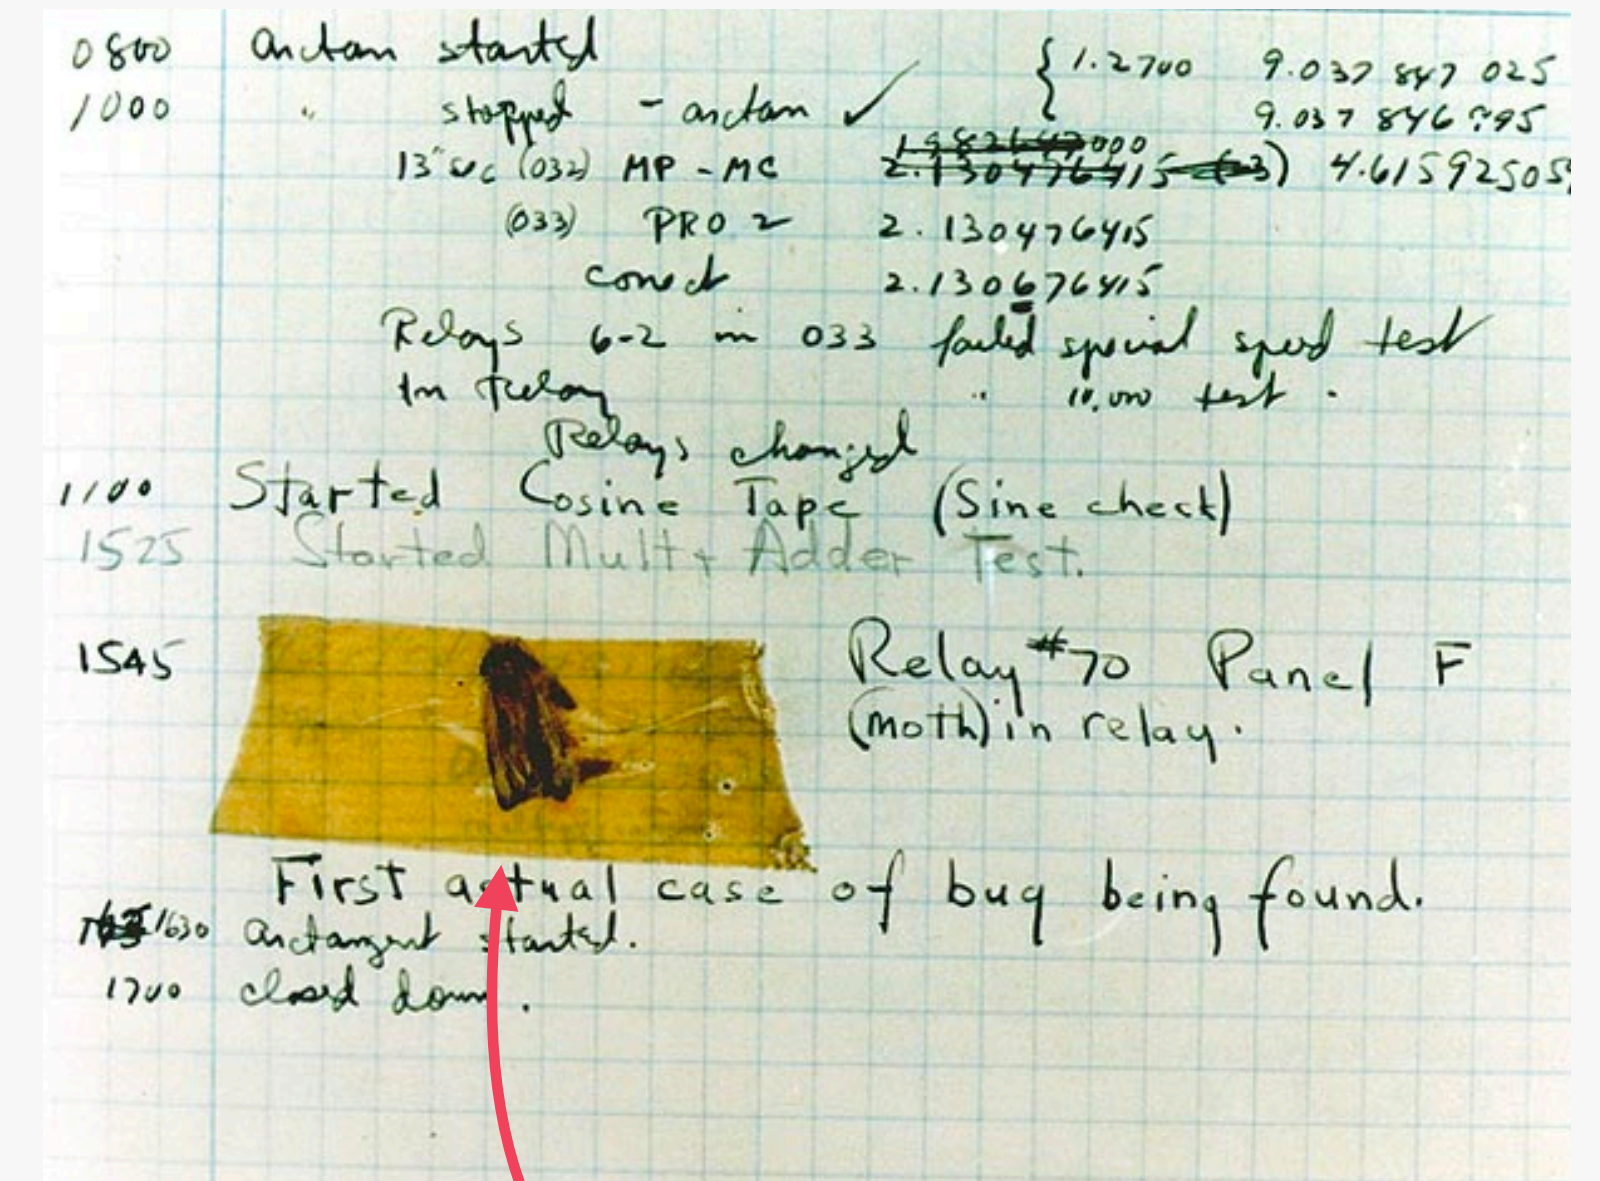 0800 arctan started { 1.2700 9.037 847 025
1000 " stopped - arctan ✓ 9.037 846 995
13" sec (032) MP - MC 1.982647000
2.130476415 (-3) 4.615925059
(033) PRO 2 2.130476415
conect 2.130676415
Relays 6-2 in 033 failed special speed test
In Relay " 10,000 test .
Relays changed
1100 Started Cosine Tape (Sine check)
1525 Started Mult + Adder Test.
1545 Relay #70 Panel F
(moth) in relay.
First actual case of bug being found.
1630 arctangent started.
1700 closed down.